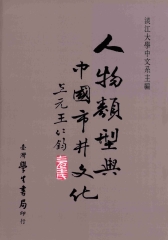 淡江大學中文系主編
人物類型與
中國市井文化
上元王仁鈞
臺灣學生書局印行